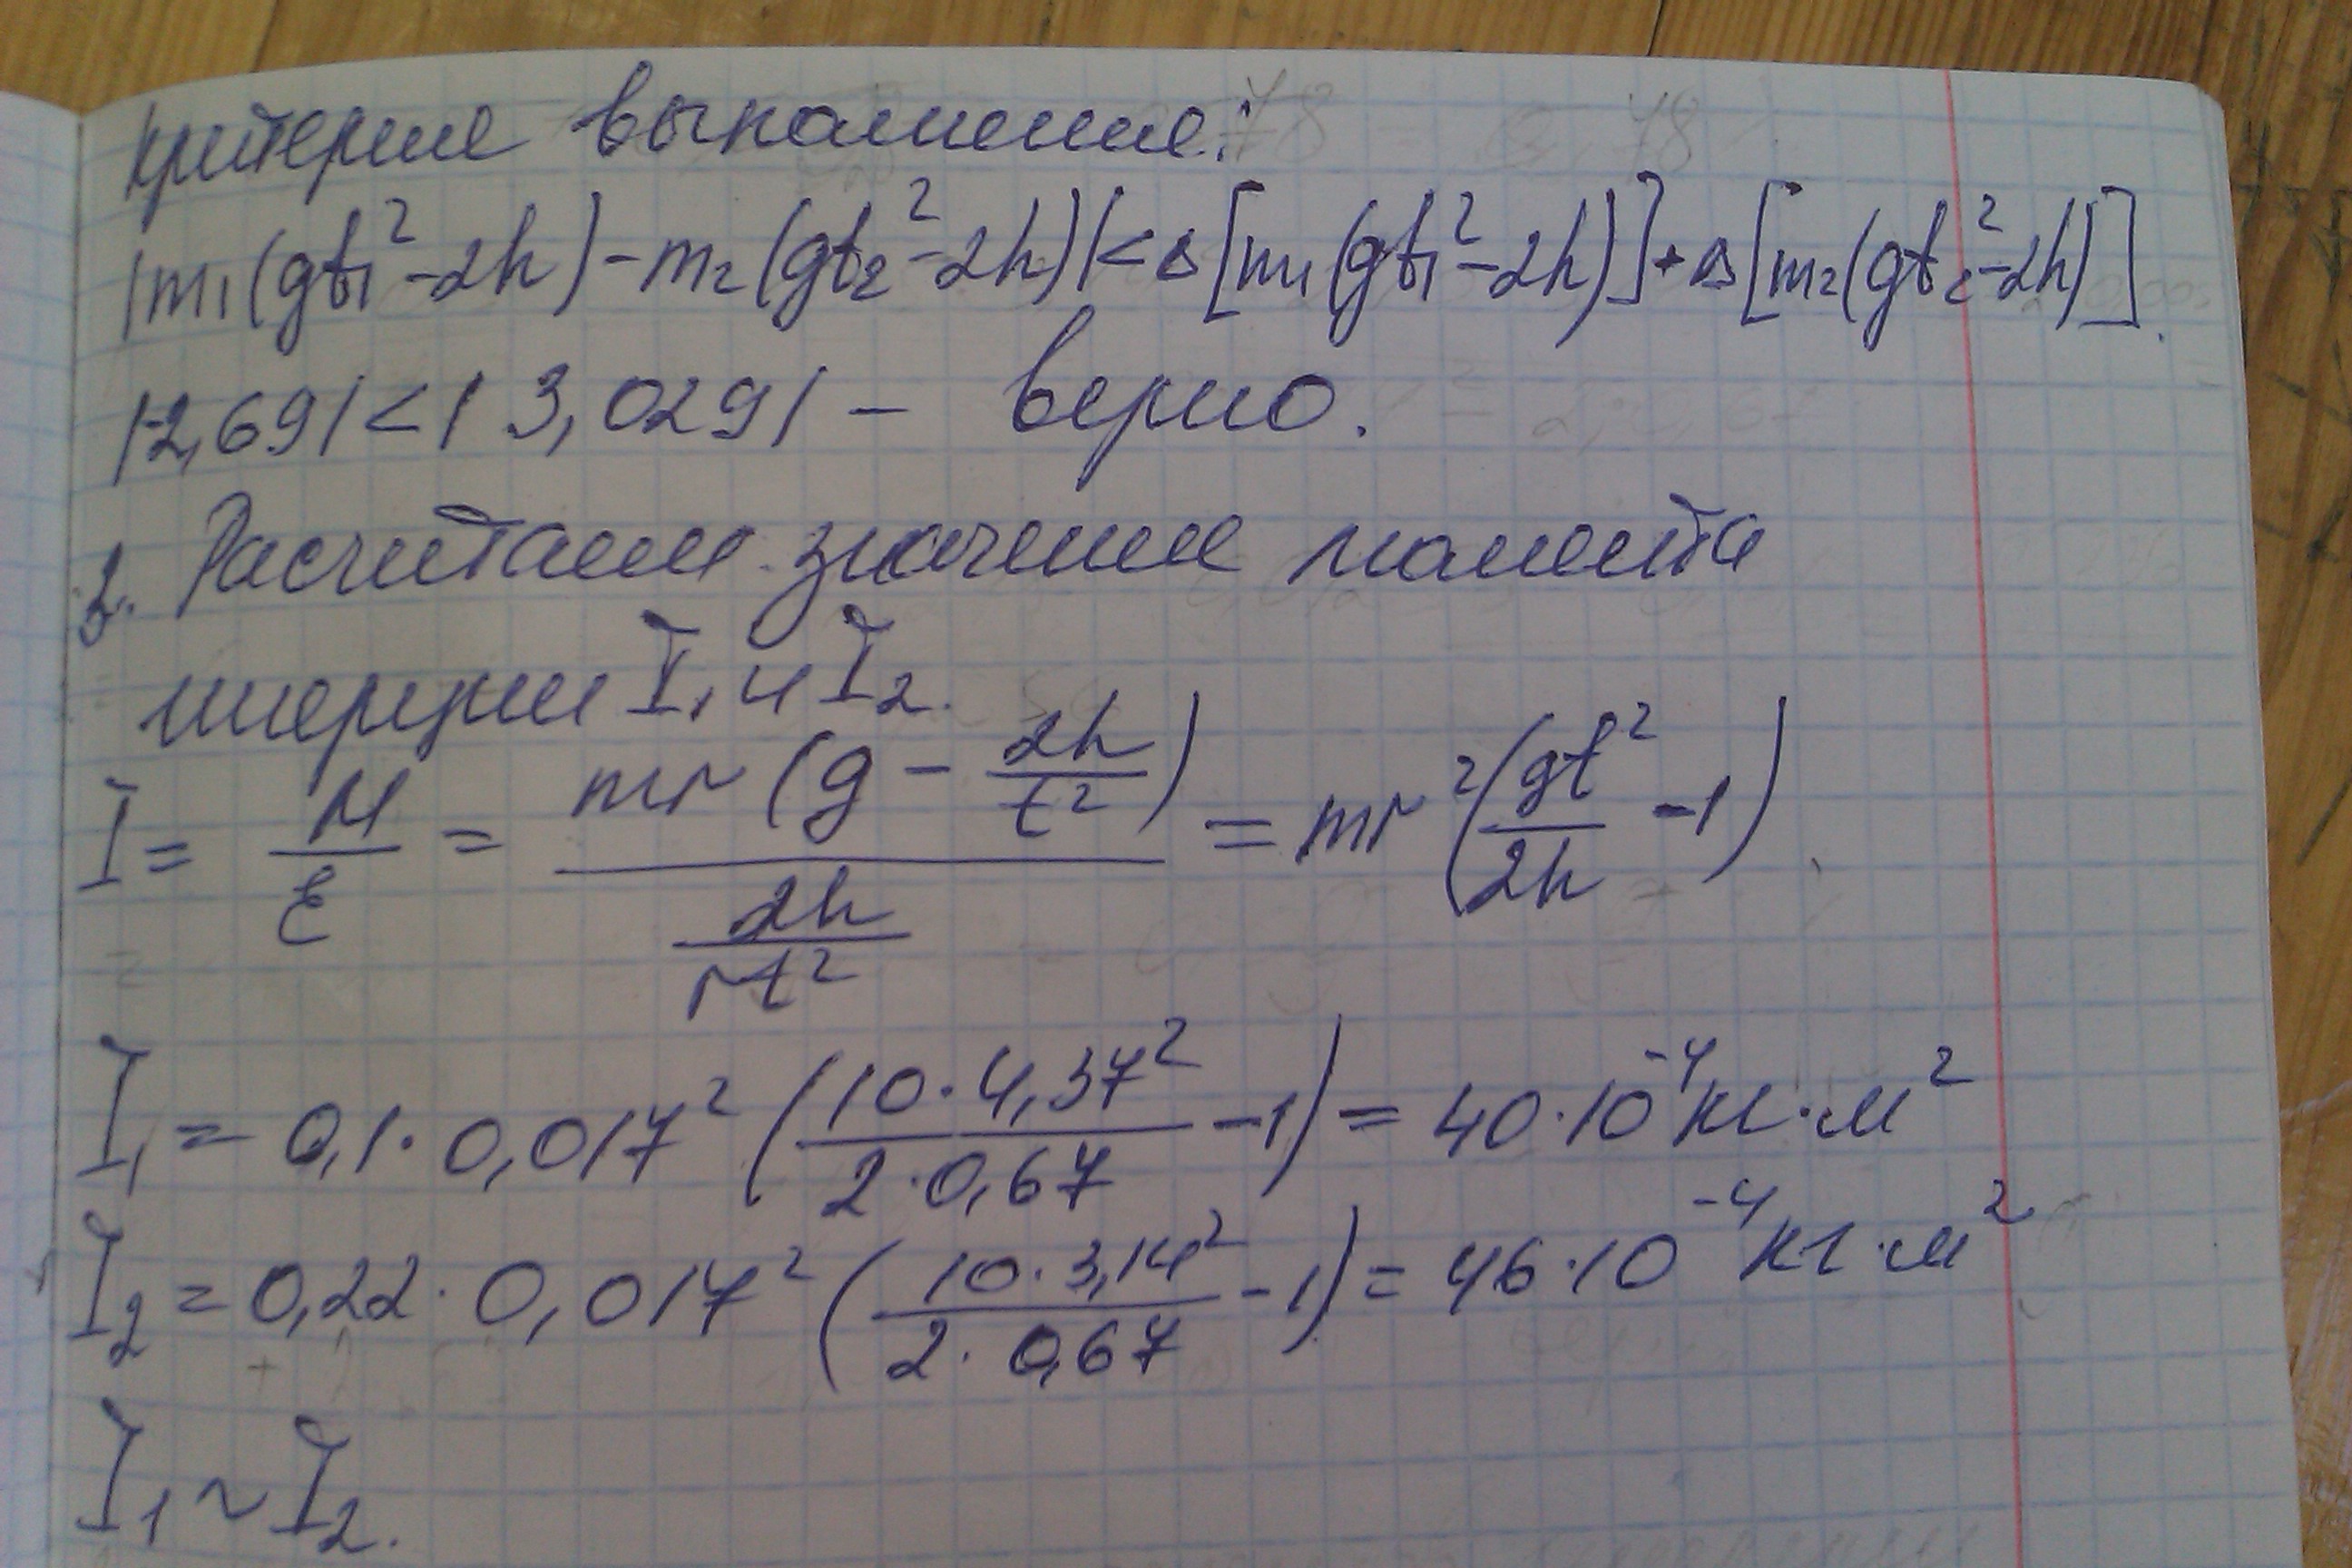 Критерие выполнение:
|m₁(gt₁²-2h)-m₂(gt₂²-2h)|<Δ[m₁(gt₁²-2h)]+Δ[m₂(gt₂²-2h)].
|-2,69|<|3,029| – верно.
3. Расчитаем значение момента
инерции I₁ и I₂.
I = M/ε = mr(g - 2h/t²) / (2h/rt²) = mr²(gt²/2h - 1)
I₁ = 0,1·0,017²(10·4,37²/2·0,67 -1) = 40·10⁻⁴кг·м²
I₂ = 0,22·0,017²(10·3,14²/2·0,67 -1) = 46·10⁻⁴кг·м²
I₁ ~ I₂.